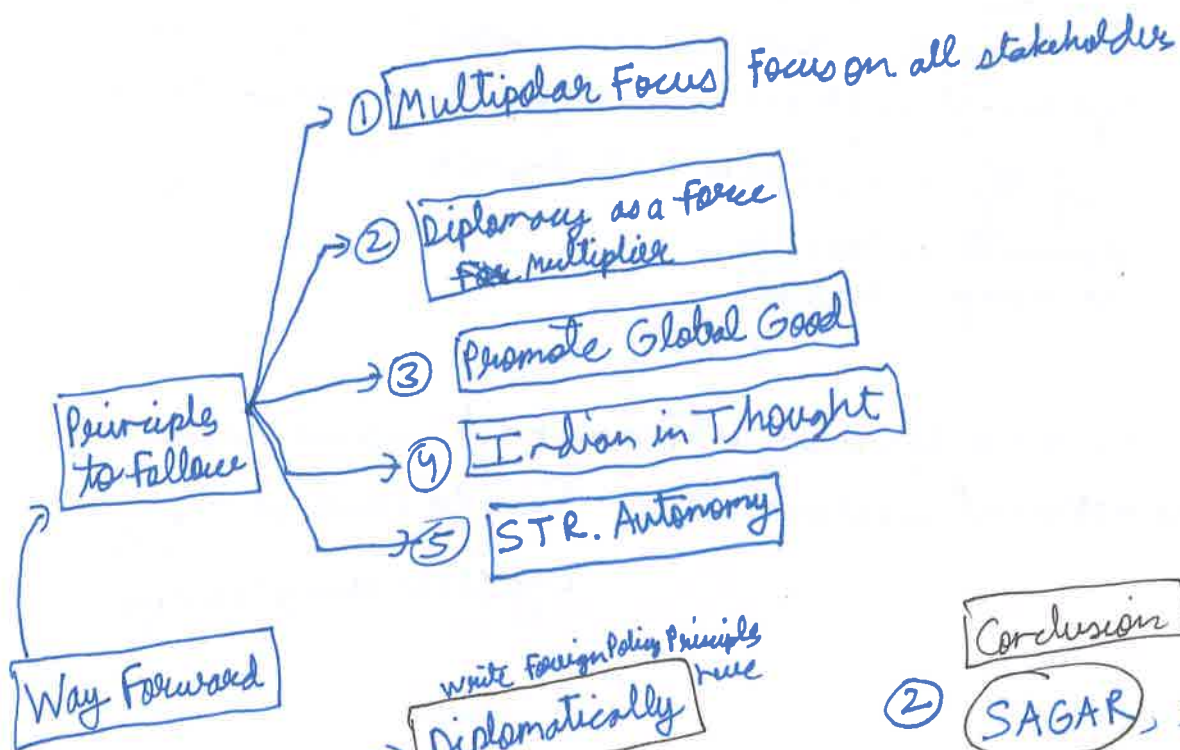 ① Multipolar Focus Focus on all stakeholders
② Diplomacy as a force
For Multiplier
③ Promote Global Good
Principles
to follow
④ Indian in Thought
⑤ STR. Autonomy
Way Forward
write Foreign Policy Principles
here
Diplomatically
Conclusion
② SAGAR,